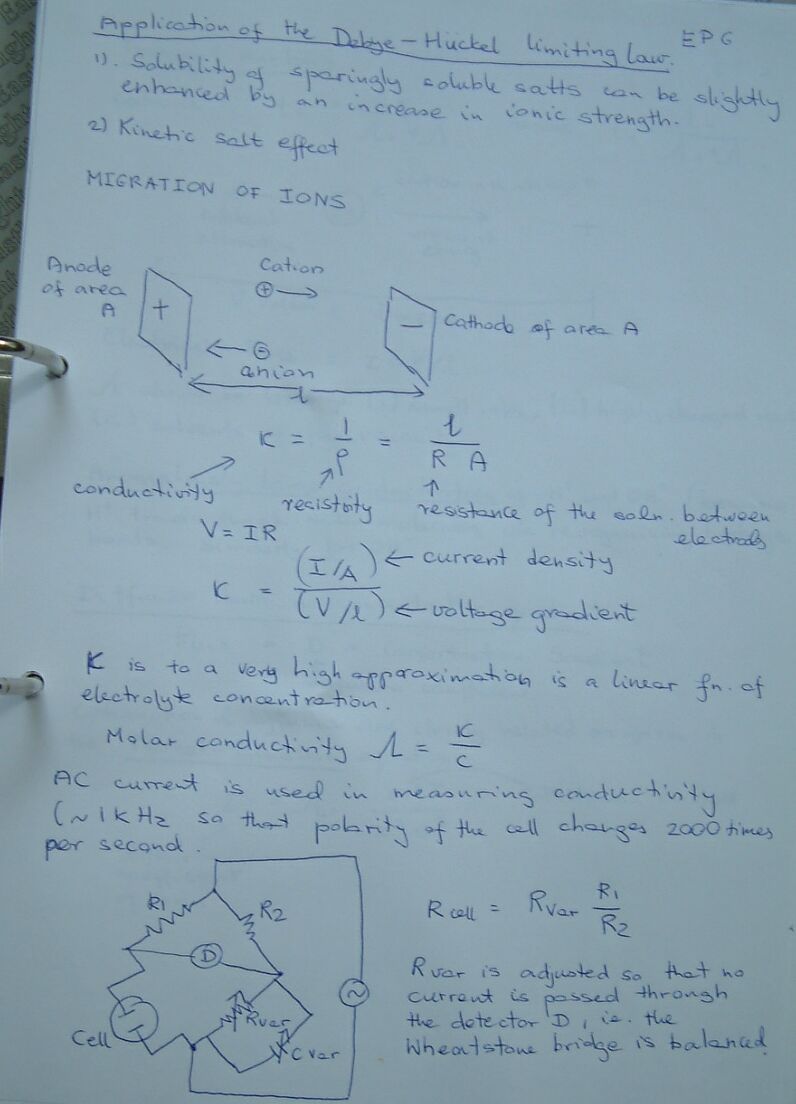 Application of the Debye-Hückel limiting law. EP6
1). Solubility of sparingly soluble salts can be slightly
enhanced by an increase in ionic strength.
2) Kinetic salt effect
MIGRATION OF IONS
Anode
of area
A
+
Cation
⊕→
←⊖
anion
l
−
Cathode of area A
K = 1/ρ = l/(R A)
conductivity
resistivity
resistance of the soln. between
electrodes
V = IR
K = (I/A)/(V/l)
← current density
← voltage gradient
K is to a very high approximation is a linear fn. of
electrolyte concentration.
Molar conductivity Λ = K/C
AC current is used in measuring conductivity
(~1kHz so that polarity of the cell changes 2000 times
per second.
R1
R2
D
~
Cell
Rvar
Cvar
Rcell = Rvar R1/R2
Rvar is adjusted so that no
current is passed through
the detector D, i.e. the
Wheatstone bridge is balanced.